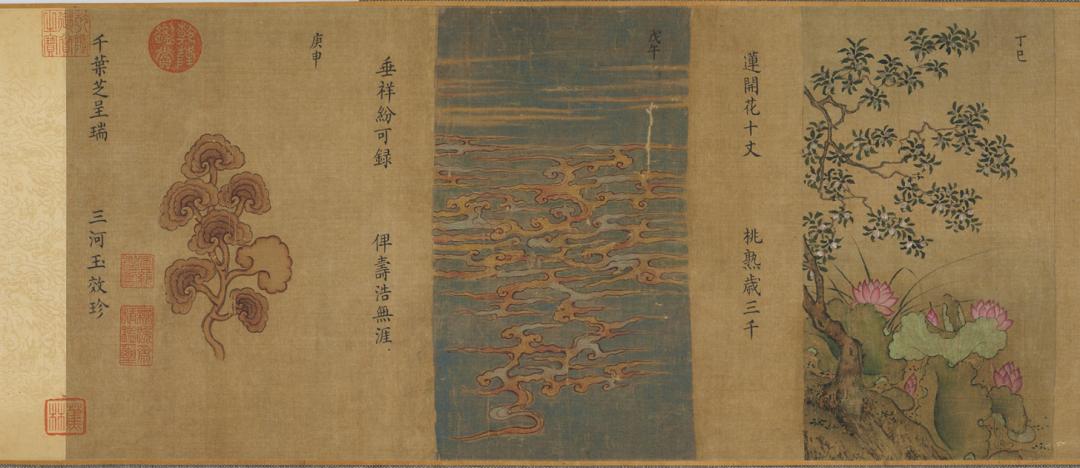 丁巳
蓮開花十丈 桃熟歳三千
戊午
垂祥紛可録 俾壽浩無涯
庚申
乾隆鑑賞
千葉芝呈瑞 三河玉效珍
蕉林